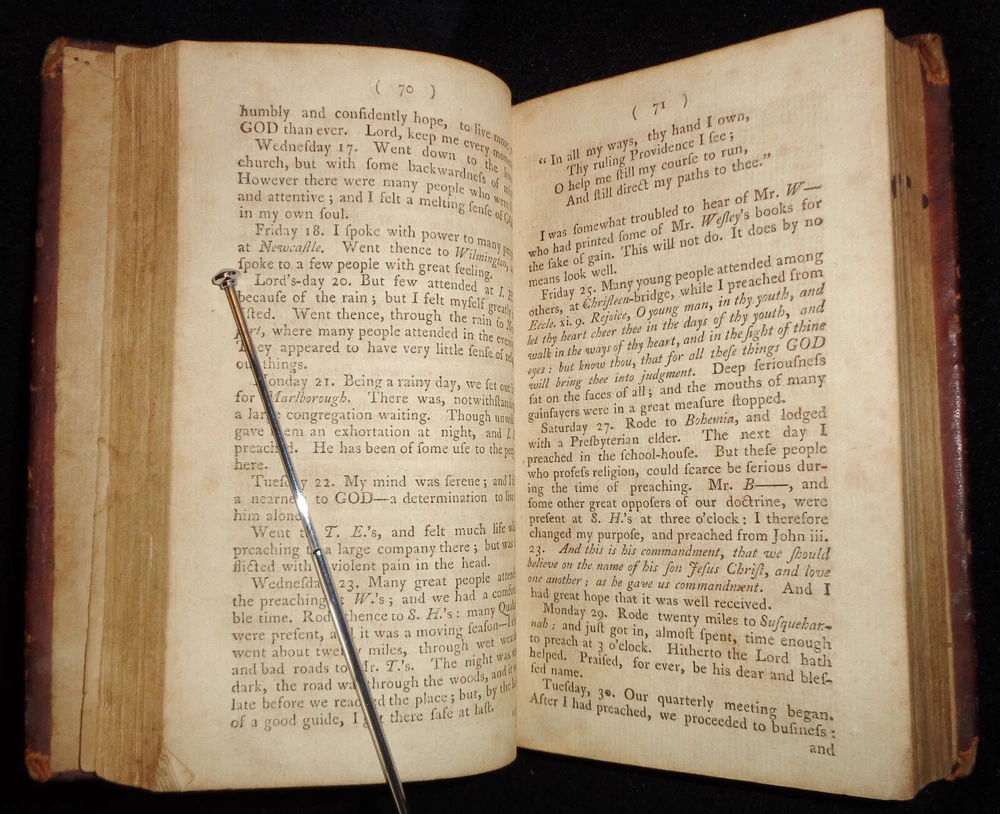 ( 70 )
humbly and confidently hope, to live more
GOD than ever. Lord, keep me every
Wedneſday 17. Went down to the
church, but with ſome backwardneſs of
However there were many people who were
and attentive ; and I felt a melting ſenſe of
in my own ſoul.
Friday 18. I ſpoke with power to many
at Newcaſtle. Went thence to Wilmington,
ſpoke to a few people with great feeling.
Lord's-day 20. But few attended at I.
becauſe of the rain ; but I felt myſelf greatly
Went thence, through the rain to
where many people attended in the
They appeared to have very little ſenſe of
things.
Monday 21. Being a rainy day, we ſet out
for Marlborough. There was,
a large congregation waiting. Though
gave them an exhortation at night, and
preached. He has been of ſome uſe to the
here.
Tueſday 22. My mind was ſerene ; and
a nearneſs to GOD—a determination to
him alone.
Went to T. E.'s, and felt much life
preaching to a large company there ; but was
flicted with violent pain in the head.
Wedneſday 23. Many great people
the preaching at W.'s ; and we had a
ble time. Rode thence to S. H.'s : many
were preſent, and it was a moving ſeaſon—
went about twenty miles, through wet
and bad roads to Mr. T.'s. The night was
dark, the road was through the woods, and
late before we reached the place ; but, by the
of a good guide, I got there ſafe at laſt.
( 71 )
“ In all my ways, thy hand I own,
Thy ruling Providence I ſee ;
O help me ſtill my courſe to run,
And ſtill direct my paths to thee.”
I was ſomewhat troubled to hear of Mr. W—
who had printed ſome of Mr. Weſley's books for
the ſake of gain. This will not do. It does by no
means look well.
Friday 25. Many young people attended among
others, at Chriſteen-bridge, while I preached from
Eccle. xi. 9. Rejoice, O young man, in thy youth, and
let thy heart cheer thee in the days of thy youth, and
walk in the ways of thy heart, and in the ſight of thine
eyes : but know thou, that for all theſe things GOD
will bring thee into judgment. Deep ſeriouſneſs
ſat on the faces of all ; and the mouths of many
gainſayers were in a great meaſure ſtopped.
Saturday 27. Rode to Bohemia, and lodged
with a Preſbyterian elder. The next day I
preached in the ſchool-houſe. But theſe people
who profeſs religion, could ſcarce be ſerious dur-
ing the time of preaching. Mr. B——, and
ſome other great oppoſers of our doctrine, were
preſent at S. H.'s at three o'clock : I therefore
changed my purpoſe, and preached from John iii.
23. And this is his commandment, that we ſhould
believe on the name of his ſon Jeſus Chriſt, and love
one another ; as he gave us commandment. And I
had great hope that it was well received.
Monday 29. Rode twenty miles to Suſquehar-
nah : and juſt got in, almoſt ſpent, time enough
to preach at 3 o'clock. Hitherto the Lord hath
helped. Praiſed, for ever, be his dear and bleſ-
ſed name.
Tueſday, 30. Our quarterly meeting began.
After I had preached, we proceeded to buſineſs :
and